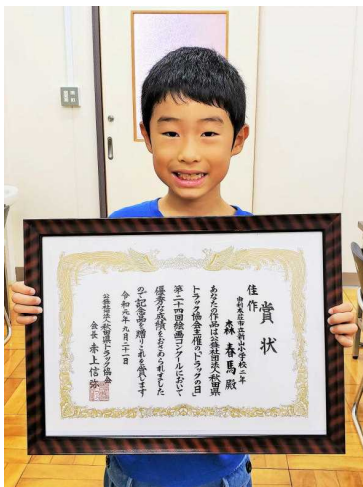 賞状
佳作
由利本荘市立新山小学校二年
森春馬殿
あなたの作品は公益社団法人秋田県
トラック協会主催の「トラックの日」
第二十四回絵画コンクールにおいて
優秀な成績をおさめられました
ので記念品を贈りこれを賞します
令和元年九月二十一日
公益社団法人秋田県トラック協会
会長赤上信弥